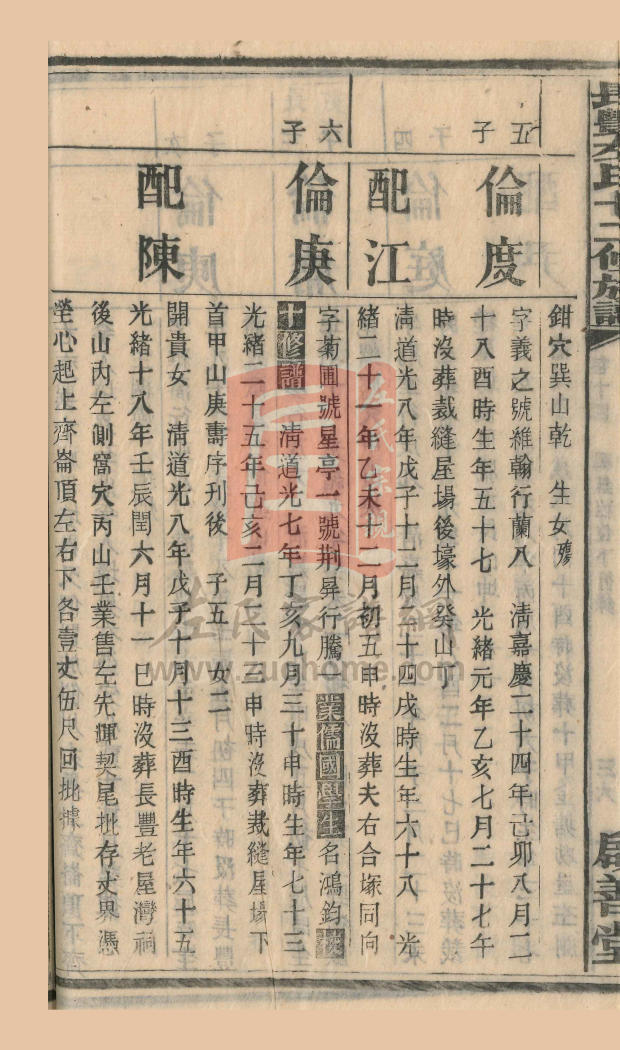 長豐左氏十二修族譜
啟善堂
鉗穴巽山乾　生女殤
五子
倫度
字義之號維翰行蘭八　清嘉慶二十四年己卯八月二
十八酉時生年五十七　光緒元年乙亥七月二十七午
時沒葬裁縫屋場後壕外癸山丁
配江
清道光八年戊子十二月二十四戌時生年六十八　光
緒二十一年乙未十二月初五申時沒葬夫右合塚同向
六子
倫庚
字菊圃號星亭一號荆昇行騰一　業儒國學生名鴻鈞
十修譜　清道光七年丁亥九月三十申時生年七十三
光緒二十五年己亥二月二十三申時沒葬裁縫屋場下
首甲山庚壽序刊後　子五　女二
配陳
開貴女　清道光八年戊子十月十三酉時生年六十五
光緒十八年壬辰閏六月十一巳時沒葬長豐老屋灣祠
後山丙左側窩穴丙山壬業售左先輝契尾批存丈界憑
塋心起上齊崙頂左右下各壹丈伍尺回批據
左氏宗親
左氏家譜網
www.zuohome.com